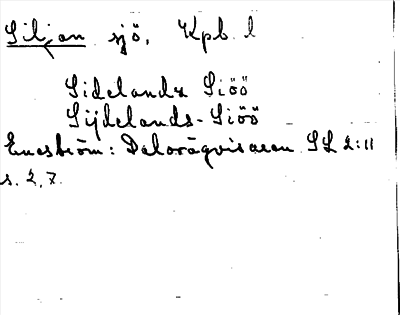 Siljan sjö, Kpb. l
Sidelandz Siöö
Sijdelands-Siöö
Eneström: Dalavägvisaren SL 2:11
s. 2, 7.